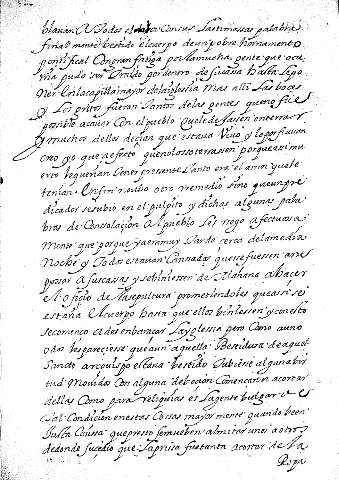 blavan A todos es con sus Lastimosas palabras
final mente bestido el cuerpo de un pobre hornamento
pontifical Con gran fatiga por la mucha gente que ocu
rria pudo ser traido por dentro de su casa hasta lepo
ner en la capilla mayor de la iglesia Mas alli Las boces
y Los gritos fueron tantos de las gentes que no fue
possible acavar con el pueblo que le dejassen enterrar
y muchos dellos decian que estava Vivo y lo certificavan
creo yo que a efecto que no lo soterrassen porque asi mu
erto le querian tener presente tanto era el amor que le
tenian En fin no ubo otro remedio sino que un pre
dicador se subio en el pulpito y dichas algunas pala
bras de Consolacion Al pueblo les rogo afectuosa
mente que porque ya era muy tarde cerca de la media
Noche y todos estavan Cansados que se fuessen a re
posar a sus casas y se biniessen de Mañana a hacer
el oficio de la sepultura prometiendoles que asi se
estaria el cuerpo hasta que ellos biniessen y con esto
se començo a desenbaraçar La yglesia pero Como a uno
o dos les pareciesse que aun aquella Bestidura de aquel
Sancto arçobispo estava bestido tubiesse alguna bir
tud Movidos Con alguna debocion Comencaron a cortar
della Como para reliquias es La gente bulgar de
tal Condicion en estas Cosas mayormente quando ben
Justa Caussa que presto se mueben a Imitar unos a otros
de donde sucedio que La prissa fue tanta a cortar de La
Ropa